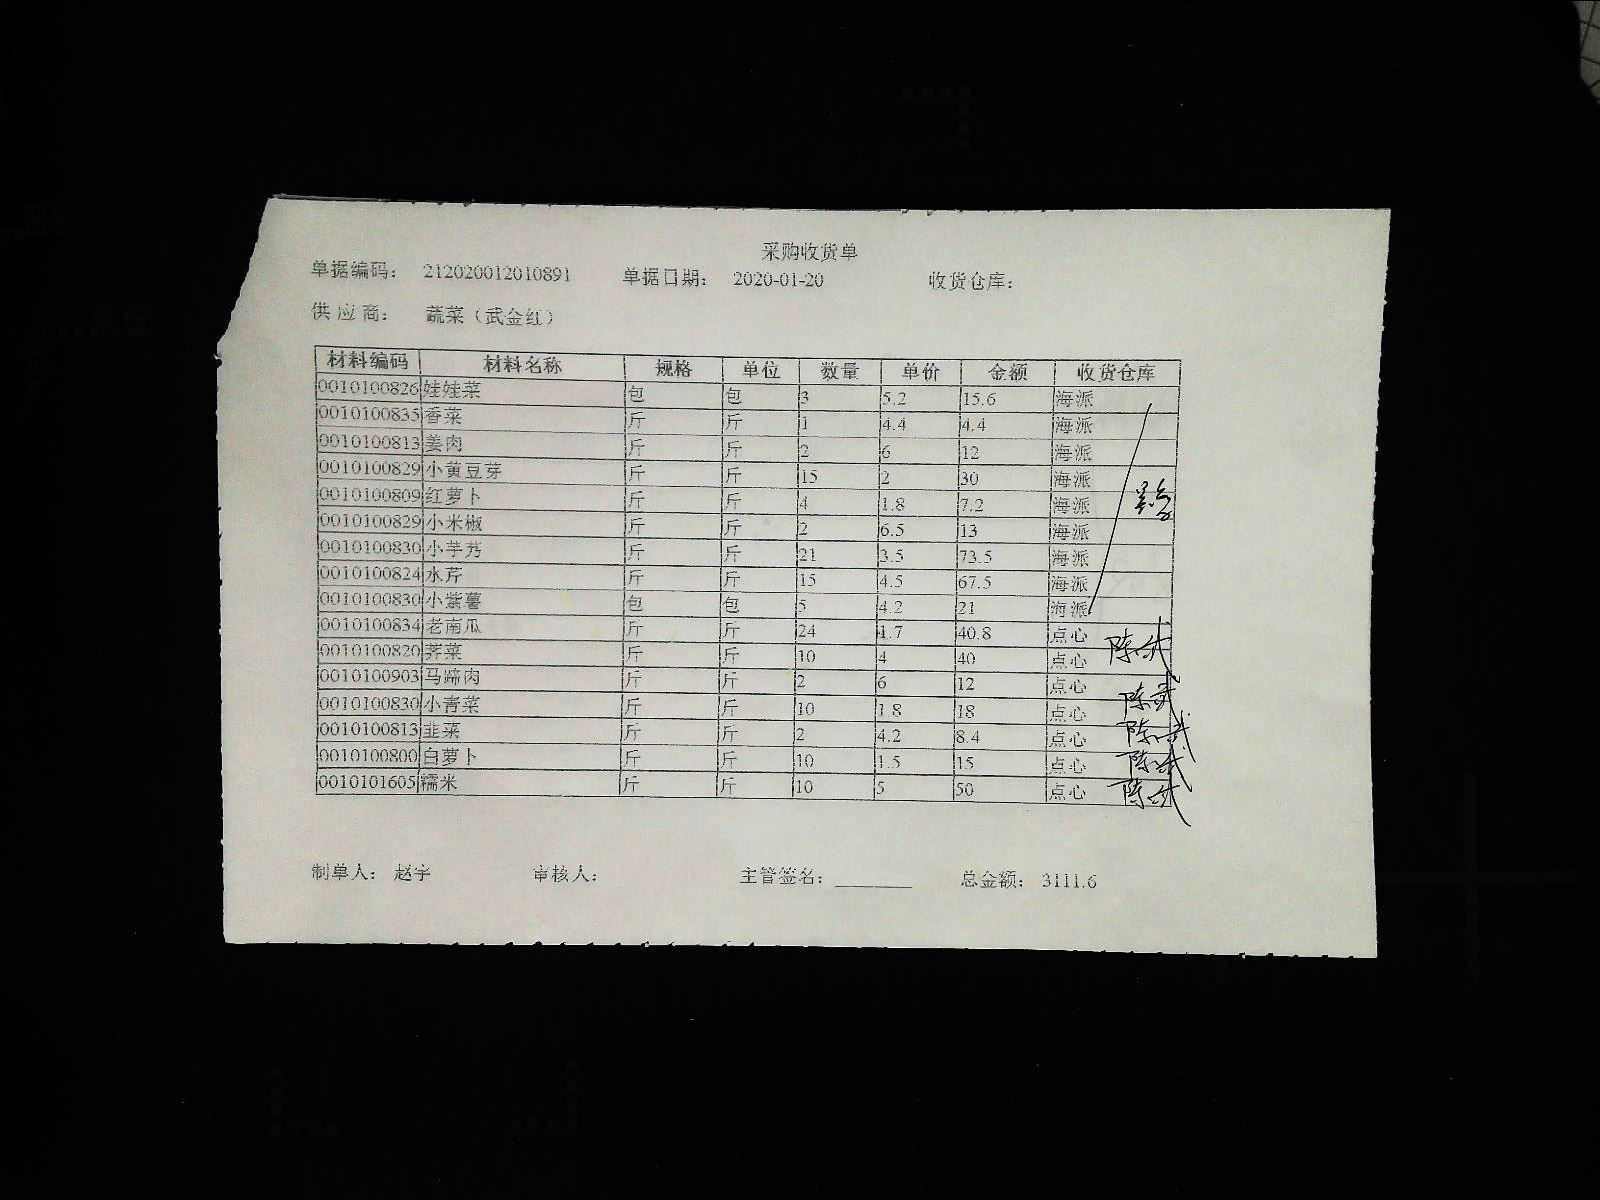 采购收货单
单据编码： 212020012010891 单据日期： 2020-01-20 收货仓库：
供 应 商： 蔬菜（武金红）
材料编码 材料名称 规格 单位 数量 单价 金额 收货仓库
0010100826 娃娃菜 包 包 3 5.2 15.6 海派
0010100835 香菜 斤 斤 1 4.4 4.4 海派
0010100813 姜肉 斤 斤 2 6 12 海派
0010100829 小黄豆芽 斤 斤 15 2 30 海派
0010100809 红萝卜 斤 斤 4 1.8 7.2 海派
0010100829 小米椒 斤 斤 2 6.5 13 海派
0010100830 小芋艿 斤 斤 21 3.5 73.5 海派
0010100824 水芹 斤 斤 15 4.5 67.5 海派
0010100830 小紫薯 包 包 5 4.2 21 海派
0010100834 老南瓜 斤 斤 24 1.7 40.8 点心
0010100820 荠菜 斤 斤 10 4 40 点心
0010100903 马蹄肉 斤 斤 2 6 12 点心
0010100830 小青菜 斤 斤 10 1.8 18 点心
0010100813 韭菜 斤 斤 2 4.2 8.4 点心
0010100800 白萝卜 斤 斤 10 1.5 15 点心
0010101605 糯米 斤 斤 10 5 50 点心
制单人： 赵宇 审核人： 主管签名： 总金额： 3111.6